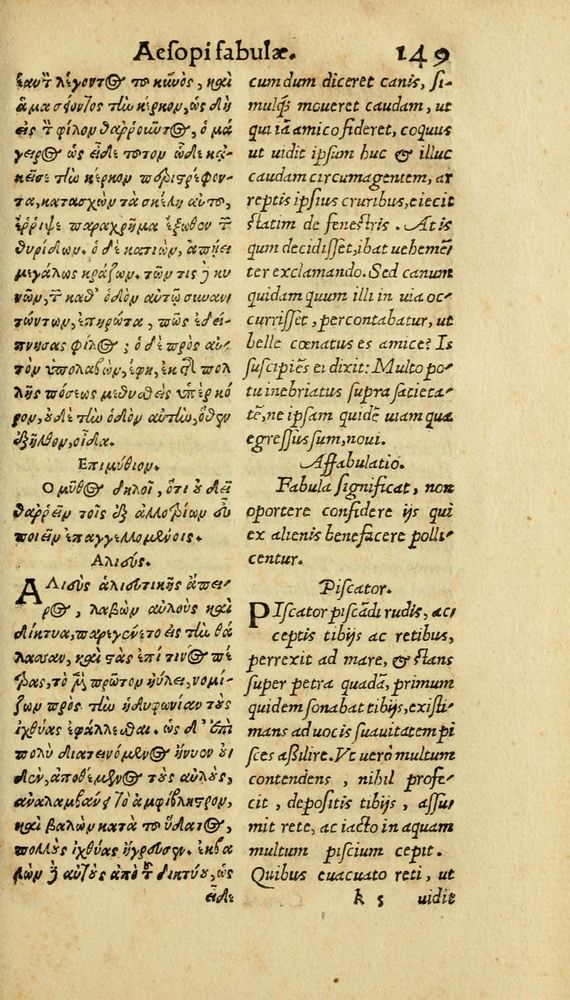 Aesopi fabulæ. 149
ἑαυτῷ λέγοντος τοῦ κυνὸς, καὶ
ἅμα σείοντος τὴν κέρκον, ὡς δὴ
εἰς τὸν φίλον θαῤῥοῦντος, ὁ μά
γειρος ὡς εἶδε τοῦτον ὧδε κἀ-
κεῖσε τὴν κέρκον περιστρέφον-
τα, κατασχὼν τὰ σκέλη αὐτοῦ,
ἔῤῥιψε παραχρῆμα ἔξωθεν τῶν
θυρίδων. ὁ δὲ κατιὼν, ἀπῄει
μεγάλως κράζων. τῶν τις δὲ κυ
νῶν, τῶν καθ' ὁδὸν αὐτῷ συναν
τώντων, ἐπηρώτα, πῶς ἐδεί-
πνησας φίλος; ὁ δὲ πρὸς αὐ-
τὸν ὑπολαβὼν, ἔφη, ἐκ τῆς πολ
λῆς πόσεως μεθυσθεὶς ὑπὲρ κό
ρον, οὐδὲ τὴν ὁδὸν αὐτὴν, ὅθεν
ἐξῆλθον, οἶδα.
Επιμύθιον.
Ο μῦθος δηλοῖ, ὅτι οὐ δεῖ
θαῤῥεῖν τοῖς ἐξ ἀλλοτρίων εὖ
ποιεῖν ἐπαγγελλομένοις.
Αλιεύς.
Αλιεὺς ἁλιευτικῆς ἄπει-
ρος, λαβὼν αὐλοὺς καὶ
δίκτυα, παρεγένετο εἰς τὴν θά
λασσαν, καὶ στὰς ἐπί τινος πέ
τρας, τὸ μὲν πρῶτον ηὔλει, νομί-
ζων πρὸς τὴν ἡδυφωνίαν τοὺς
ἰχθύας ἐφάλλεσθαι. ὡς δ' ἐπὶ
πολὺ διατεινόμενος ἤνυεν οὐ
δὲν, ἀποθέμενος τοὺς αὐλοὺς,
ἀναλαμβάνει τὸ ἀμφίβληστρον,
καὶ βαλὼν κατὰ τοῦ ὕδατος,
πολλοὺς ἰχθύας ἤγρευσεν. ἐκβα
λὼν δὲ αὐτοὺς ἀπὸ τοῦ δικτύου, ὡς
εἶδε
cum dum diceret canis, si-
mulq́; moueret caudam, ut
qui iã amico fideret, coquus
ut uidit ipsum huc & illuc
caudam circumagentem, ar
reptis ipsius cruribus, eiecit
statim de fenestris. At is
qum decidisset, ibat uehemẽ
ter exclamando. Sed canum
quidam quum illi in uia oc-
currisset, percontabatur, ut
belle cœnatus es amice? Is
suscipiẽs ei dixit: Multo po-
tu inebriatus supra satieta-
tẽ, ne ipsam quidẽ uiam qua
egressus sum, noui.
Affabulatio.
Fabula significat, non
oportere confidere ijs qui
ex alienis benefacere polli
centur.
Piscator.
PIscator piscãdi rudis, ac
ceptis tibijs ac retibus,
perrexit ad mare, & stans
super petra quadã, primum
quidem sonabat tibijs, existi
mans ad uocis suauitatem pi
sces assilire. Vt uerò multum
contendens, nihil profe-
cit, depositis tibijs, assu
mit rete, ac iacto in aquam
multum piscium cepit.
Quibus euacuato reti, ut
k 5 uidit